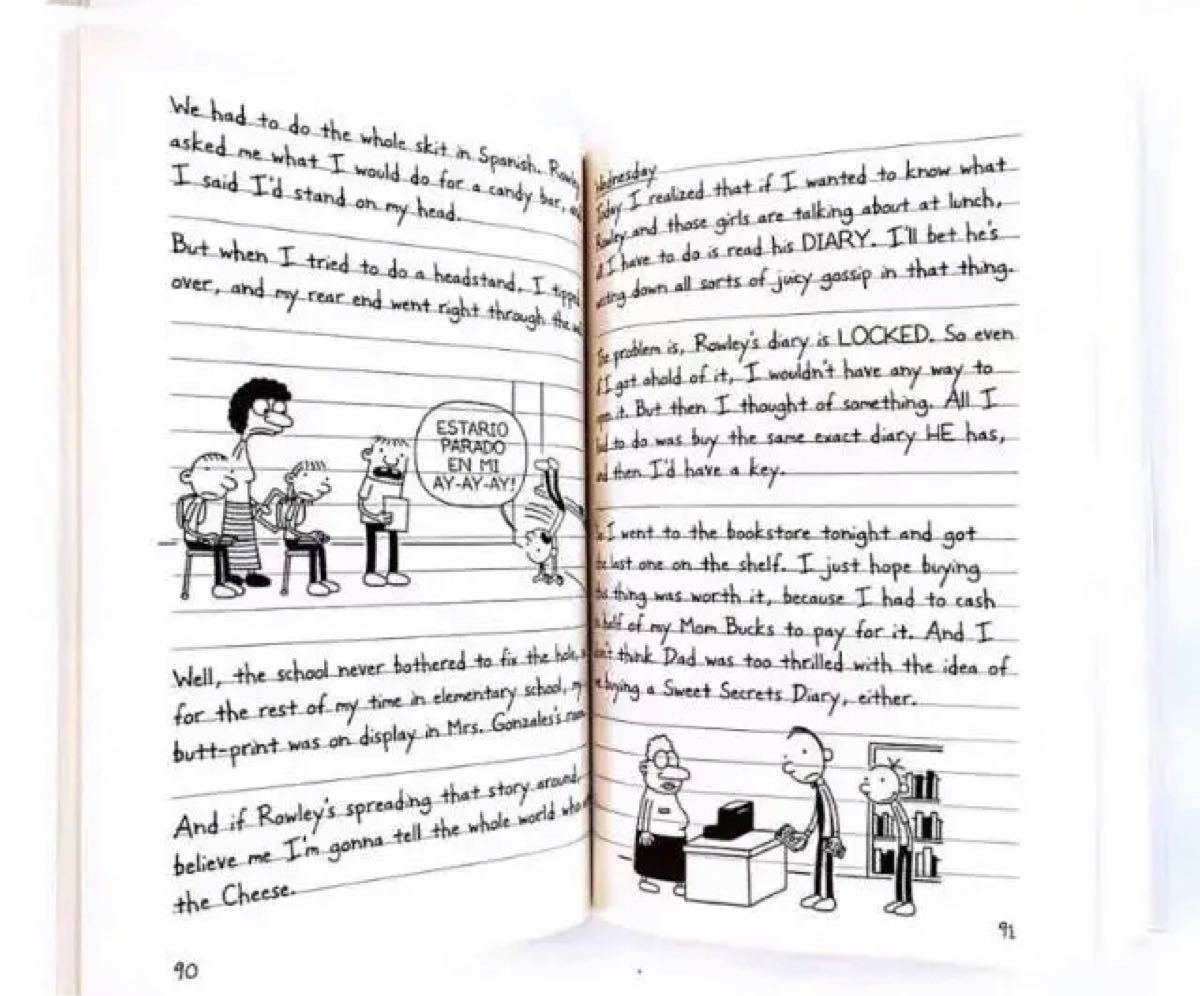 We had to do the whole skit in Spanish. Rowley
asked me what I would do for a candy bar,
I said I'd stand on my head.
But when I tried to do a headstand, I tipped
over, and my rear end went right through the
ESTARIO
PARADO
EN MI
AY-AY-AY!
Well, the school never bothered to fix the hole,
for the rest of my time in elementary school, my
butt-print was on display in Mrs. Gonzales's room
And if Rowley's spreading that story around,
believe me I'm gonna tell the whole world who
the Cheese.
90
Wednesday
Today I realized that if I wanted to know what
Rowley and those girls are talking about at lunch,
I have to do is read his DIARY. I'll bet he's
down all sorts of juicy gossip in that thing.
The problem is, Rowley's diary is LOCKED. So even
if I got ahold of it, I wouldn't have any way to
open it. But then I thought of something. All I
had to do was buy the same exact diary HE has,
and then I'd have a key.
I went to the bookstore tonight and got
the last one on the shelf. I just hope buying
this thing was worth it, because I had to cash
half of my Mom Bucks to pay for it. And I
don't think Dad was too thrilled with the idea of
me buying a Sweet Secrets Diary, either.
91